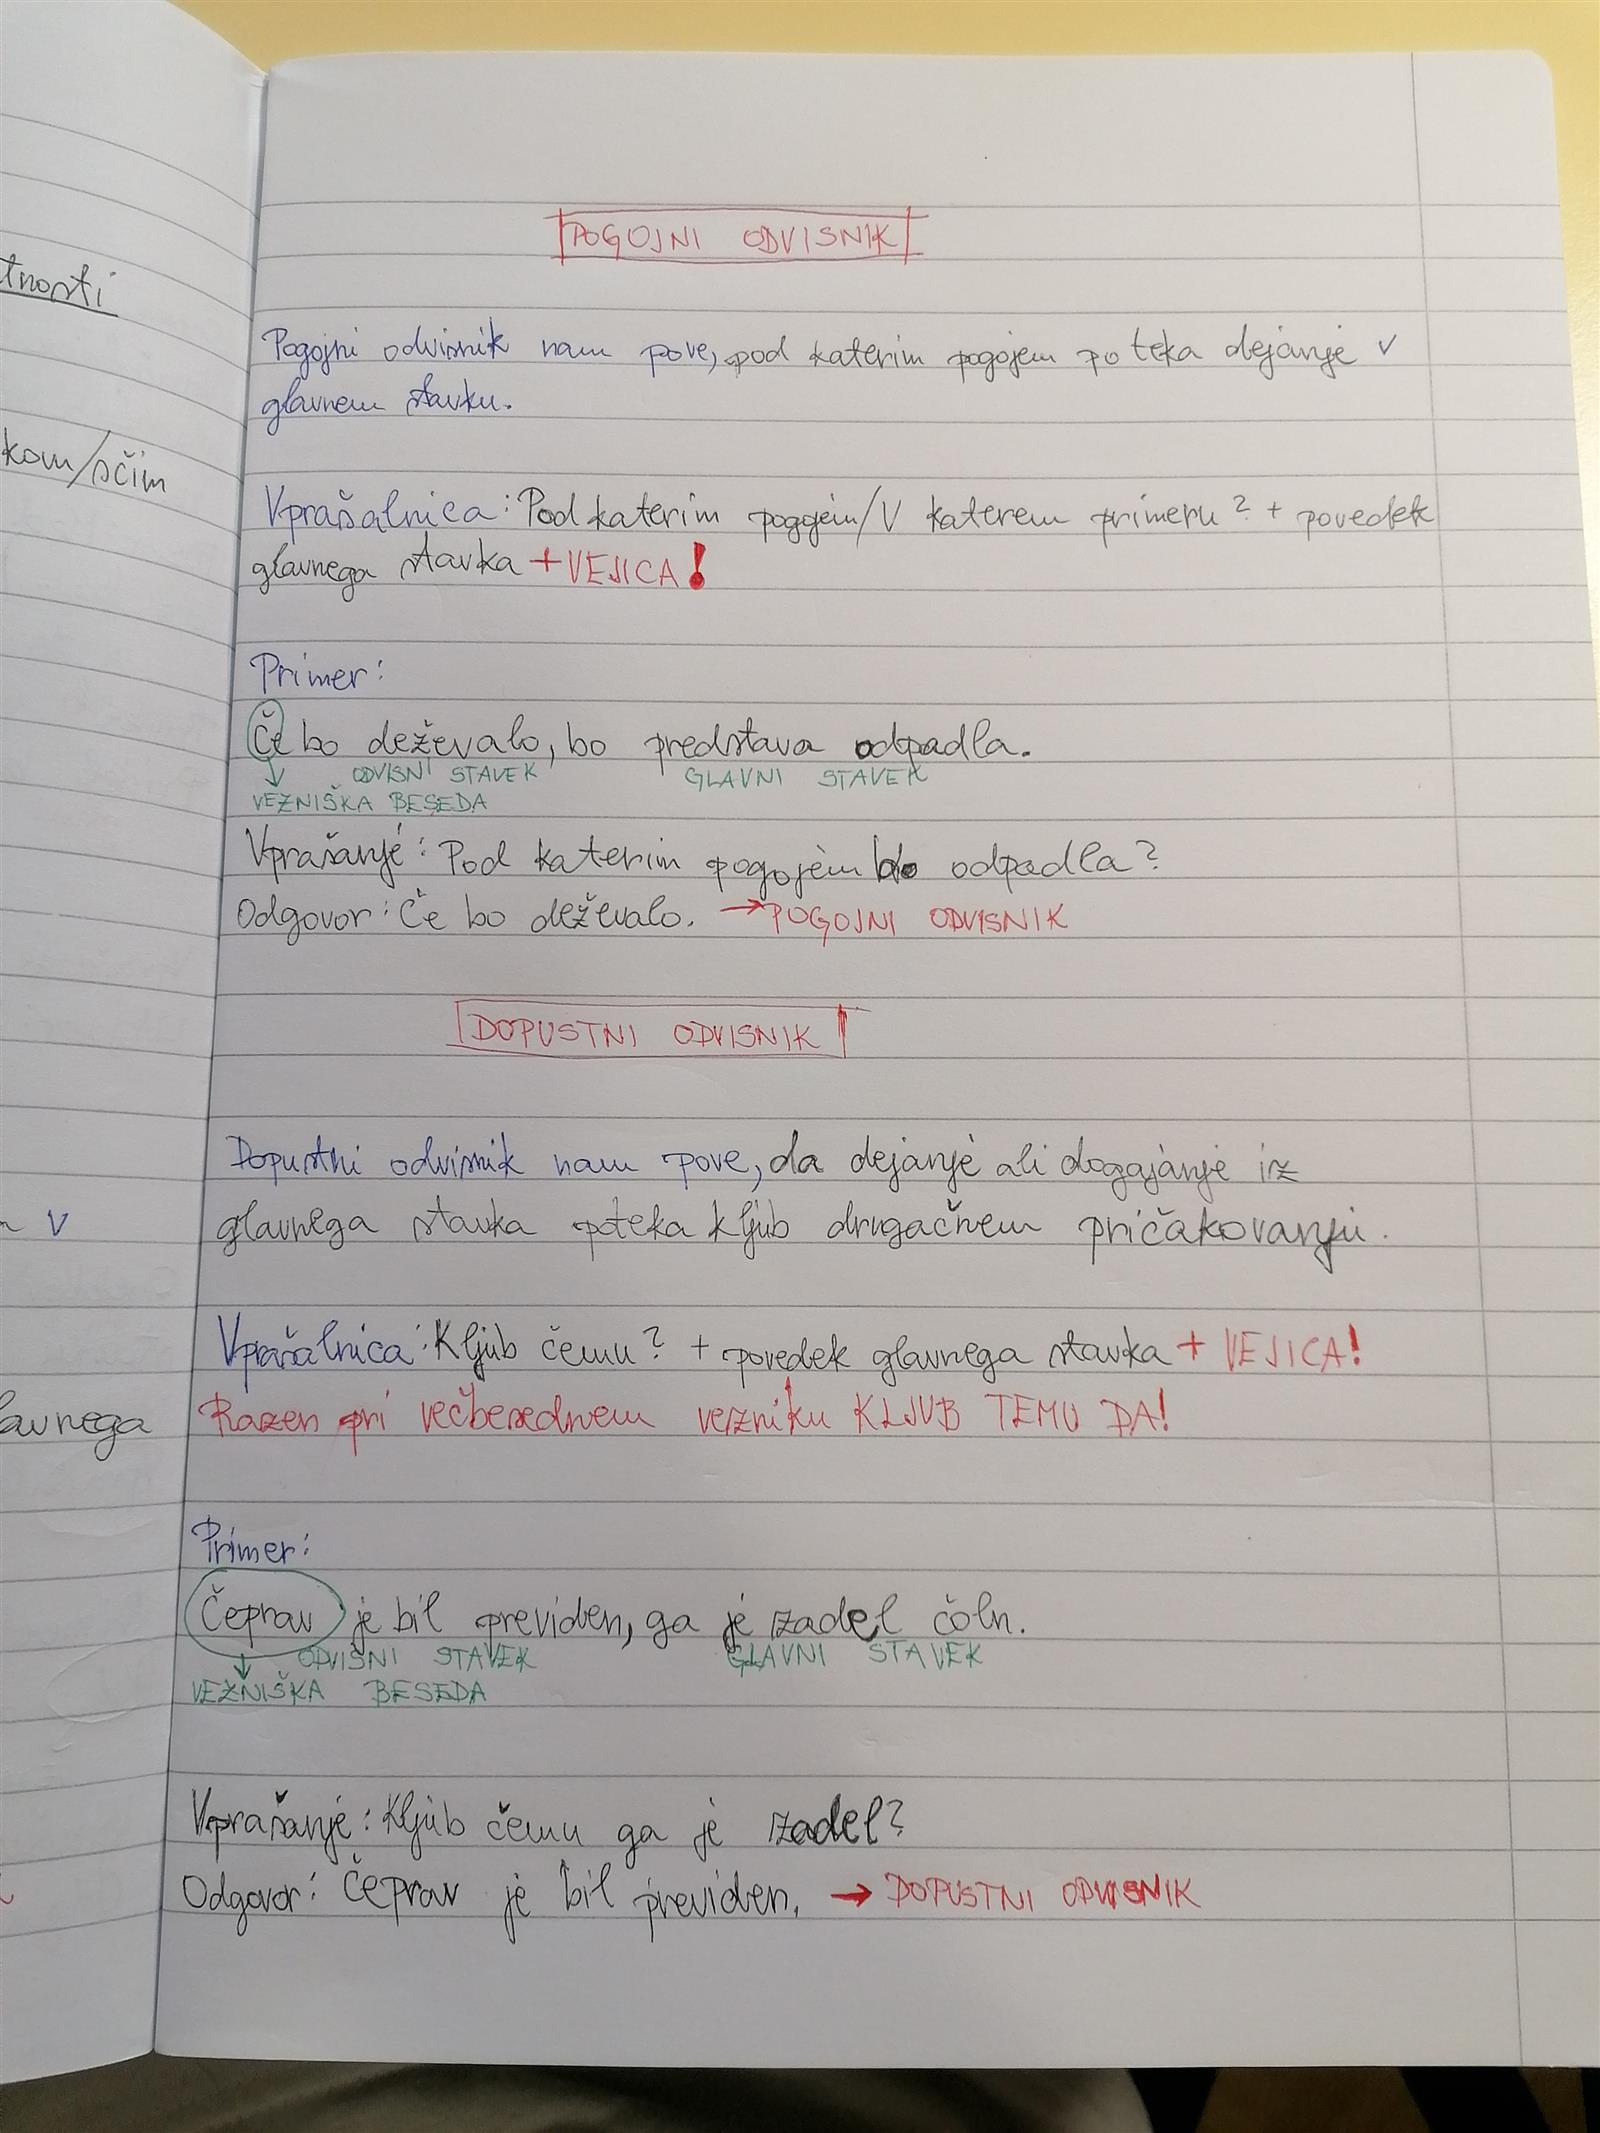 tnosti
kom/s čim
n v
lavnega
POGOJNI ODVISNIK
Pogojni odvisnik nam pove, pod katerim pogojem poteka dejanje v
glavnem stavku.
Vprašalnica: Pod katerim pogojem/V katerem primeru? + povedek
glavnega stavka + VEJICA!
Primer:
Če bo deževalo, bo predstava odpadla.
ODVISNI STAVEK GLAVNI STAVEK
VEZNIŠKA BESEDA
Vprašanje: Pod katerim pogojem bo odpadla?
Odgovor: Če bo deževalo. → POGOJNI ODVISNIK
DOPUSTNI ODVISNIK
Dopustni odvisnik nam pove, da dejanje ali dogajanje iz
glavnega stavka poteka kljub drugačnem pričakovanju.
Vprašalnica: Kljub čemu? + povedek glavnega stavka + VEJICA!
Razen pri večbesednem vezniku KLJUB TEMU DA!
Primer:
Čeprav je bil previden, ga je zadel čoln.
ODVISNI STAVEK GLAVNI STAVEK
VEZNIŠKA BESEDA
Vprašanje: Kljub čemu ga je zadel?
Odgovor: Čeprav je bil previden. → DOPUSTNI ODVISNIK